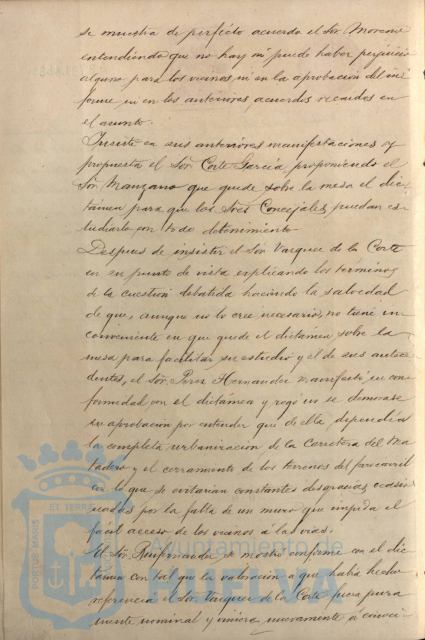 se muestra de perfécto acuerdo el Sor. Moreno
entendiendo que no hay ni puede haber perjuicio
alguno para los vecinos ni en la aprobación del in-
forme ni en los anteriores acuerdos recaidos en
el asunto.
Insiste en sus anteriores manifestaciones y
propuesta el Sor. Corte Garcia proponiendo el
Sor. Manzano que quede sobre la mesa el dic-
támen para que los Sres. Concejales puedan es-
tudiarlo con todo detenimiento
Despues de insistir el Sor. Vazquez de la Corte
en su punto de vista esplicando los términos
de la cuestión debatida haciendo la salvedad
de que, aunque no lo cree necesario, no tiene in-
conveniente en que quede el dictámen sobre la
mesa para facilitar su estudio y el de sus antece-
dentes, el Sor. Perez Hernandez manifestó su con-
formidad con el dictámen y rogó no se demorase
su aprobación por entender que de ella dependia
la completa urbanización de la Carretera del Ma-
tadero y el cerramiento de los terrenos del ferrocarril
con lo que se evitarian constantes desgracias ocasio-
nadas por la falta de un muro que impida el
fácil acceso de los vecinos á las vias.
El Sor. se mostró conforme con el dic-
támen con tal que la valoración a que habia hecho
referencia el Sor. Vazquez de la Corte fuera pura-
mente nominal y
Ayuntamiento de
HUELVA
PORTUS MARIS ET TERRE